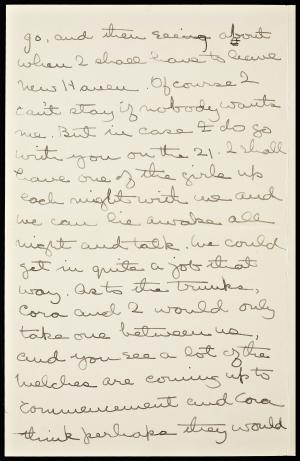 go, and then seeing about
when I shall have to leave
New Haven. Of course I
can't stay if nobody wants
me. But in case I do go
with you on the 21. I shall
have one of the girls up
each night with me and
we can lie awake all
night and talk. We could
get in quite a job that
way. As to the trunks,
Cora and I would only
take one between us,
and you see a lot of the
Welches are coming up to
commencement and Cora
think perhaps they would